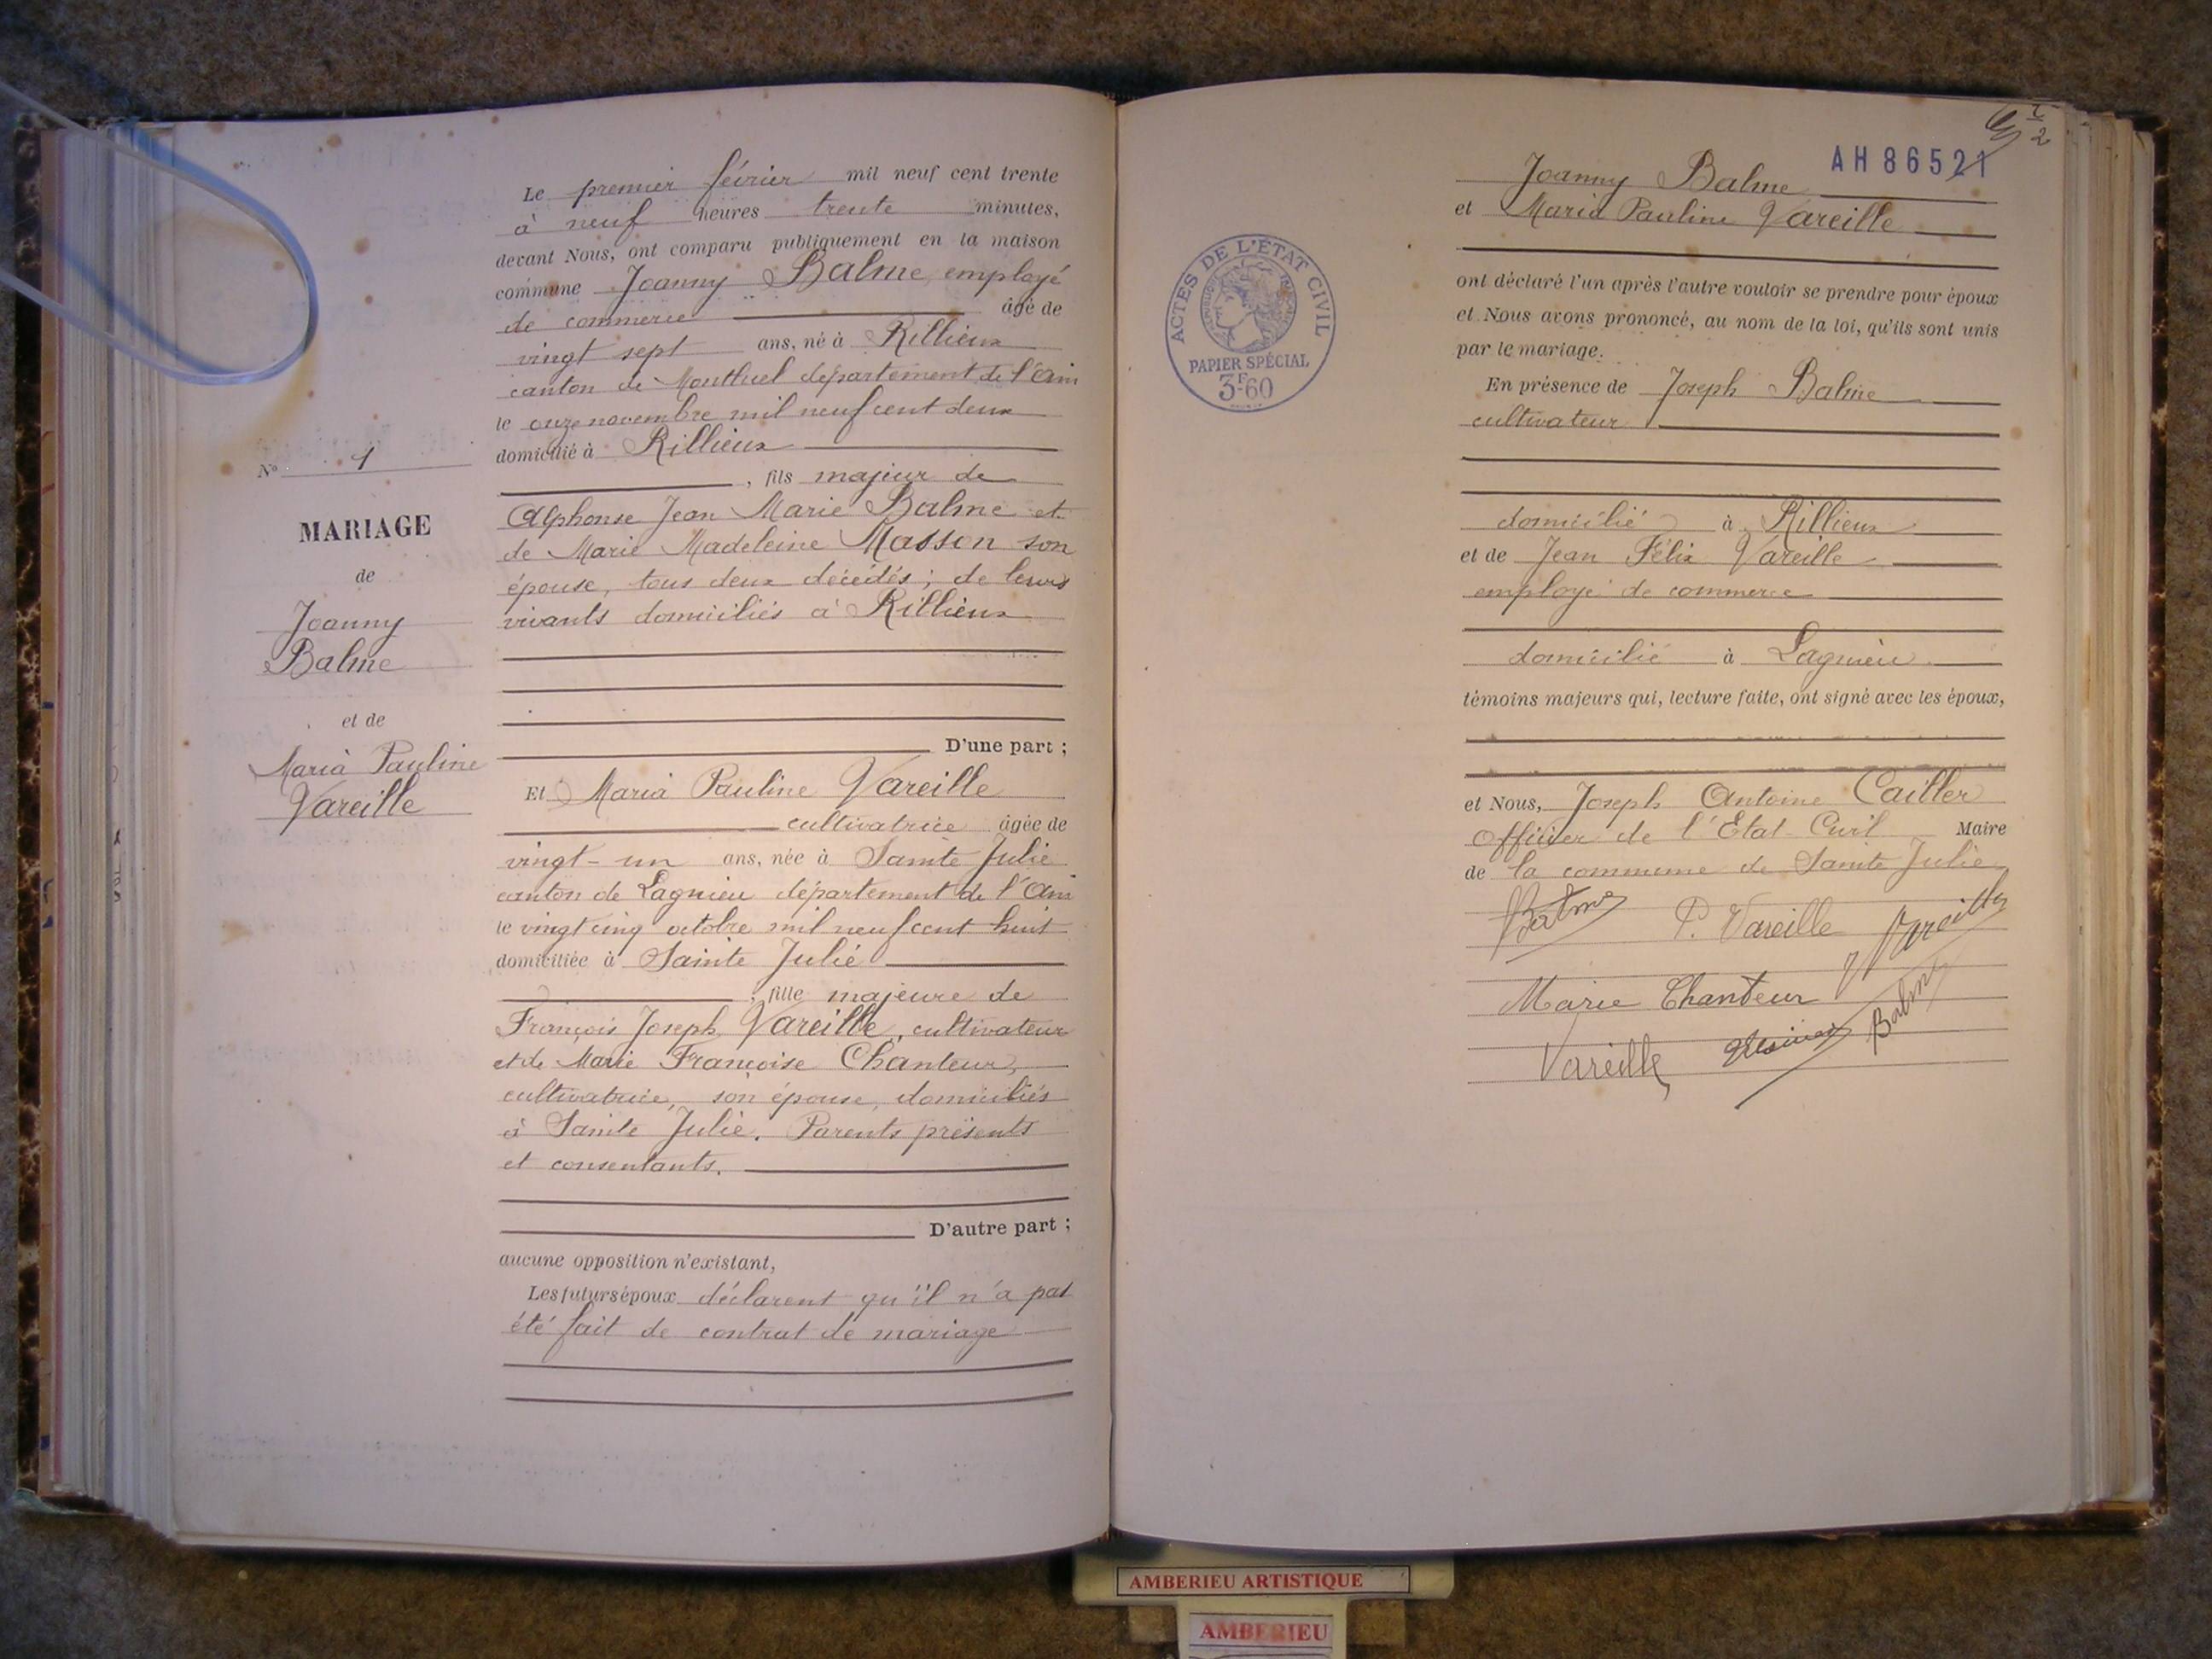 Le premier février mil neuf cent trente
à neuf heures trente minutes,
devant Nous, ont comparu publiquement en la maison
commune Joanny Balme employé
de commerce âgé de
vingt sept ans, né à Rillieux
canton de Montluel département de l'Ain
le onze novembre mil neuf cent deux
domicilié à Rillieux
, fils majeur de
Alphonse Jean Marie Balme et
de Marie Madeleine Masson son
épouse, tous deux décédés ; de leurs
vivants domiciliés à Rillieux
D'une part ;
Et Maria Pauline Vareille
cultivatrice âgée de
vingt-un ans, née à Sainte Julie
canton de Lagnieu département de l'Ain
le vingt cinq octobre mil neuf cent huit
domiciliée à Sainte Julie
, fille majeure de
François Joseph Vareille, cultivateur
et de Marie Françoise Chanteur,
cultivatrice, son épouse, domiciliés
à Sainte Julie. Parents présents
et consentants.
D'autre part ;
aucune opposition n'existant,
Les futurs époux déclarent qu'il n'a pas
été fait de contrat de mariage
No 1
MARIAGE
de
Joanny
Balme
et de
Maria Pauline
Vareille
AH 86521
Joanny Balme
et Maria Pauline Vareille
ont déclaré l'un après l'autre vouloir se prendre pour époux
et Nous avons prononcé, au nom de la loi, qu'ils sont unis
par le mariage.
En présence de Joseph Balme
cultivateur
domicilié à Rillieux
et de Jean Félix Vareille
employé de commerce
domicilié à Lagnieu
témoins majeurs qui, lecture faite, ont signé avec les époux,
et Nous, Joseph Antoine Cailler
Officier de l'Etat-Civil Maire
de la commune de Sainte Julie
Balme P. Vareille Vareille
Marie Chanteur
Vareille Balme
ACTES DE L'ÉTAT CIVIL
PAPIER SPÉCIAL
3F.60
AMBERIEU ARTISTIQUE
AMBERIEU